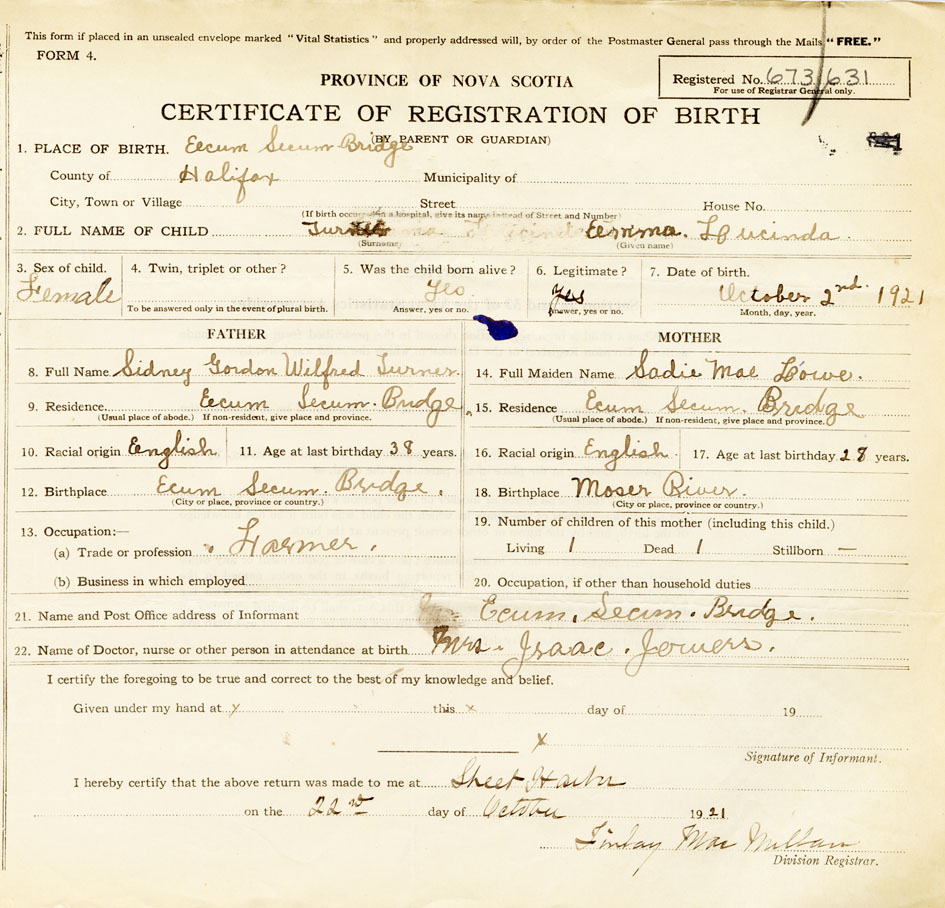 This form if placed in an unsealed envelope marked "Vital Statistics" and properly addressed will, by order of the Postmaster General pass through the Mails "FREE."
FORM 4.
PROVINCE OF NOVA SCOTIA
Registered No. 673631
For use of Registrar General only.
CERTIFICATE OF REGISTRATION OF BIRTH
(BY PARENT OR GUARDIAN)
1. PLACE OF BIRTH. Eecum Secum Bridge
County of Halifax Municipality of
City, Town or Village Street House No.
(If birth occurred in a hospital, give its name instead of Street and Number)
2. FULL NAME OF CHILD Turner Emma. Lucinda.
(Surname) (Given name)
3. Sex of child. 4. Twin, triplet or other? 5. Was the child born alive? 6. Legitimate? 7. Date of birth.
Female Yes Yes October 2nd. 1921
To be answered only in the event of plural birth. Answer, yes or no. Answer, yes or no. Month, day, year.
FATHER MOTHER
8. Full Name Sidney Gordon Wilfred Turner 14. Full Maiden Name Sadie Mae Lowe.
9. Residence Eecum Secum. Bridge 15. Residence Ecum Secum. Bridge
(Usual place of abode.) If non-resident, give place and province. (Usual place of abode.) If non-resident, give place and province.
10. Racial origin English 11. Age at last birthday 38 years. 16. Racial origin English. 17. Age at last birthday 28 years.
12. Birthplace Ecum Secum. Bridge. 18. Birthplace Moser River.
(City or place, province or country.) (City or place, province or country.)
13. Occupation:— 19. Number of children of this mother (including this child.)
(a) Trade or profession Farmer. Living 1 Dead 1 Stillborn —
(b) Business in which employed 20. Occupation, if other than household duties
21. Name and Post Office address of Informant Ecum. Secum. Bridge.
22. Name of Doctor, nurse or other person in attendance at birth Mrs. Isaac. Jowers.
I certify the foregoing to be true and correct to the best of my knowledge and belief.
Given under my hand at x this x day of 19
x
Signature of Informant.
I hereby certify that the above return was made to me at Sheet Harbor
on the 22nd day of October 1921
Finlay MacMillan
Division Registrar.